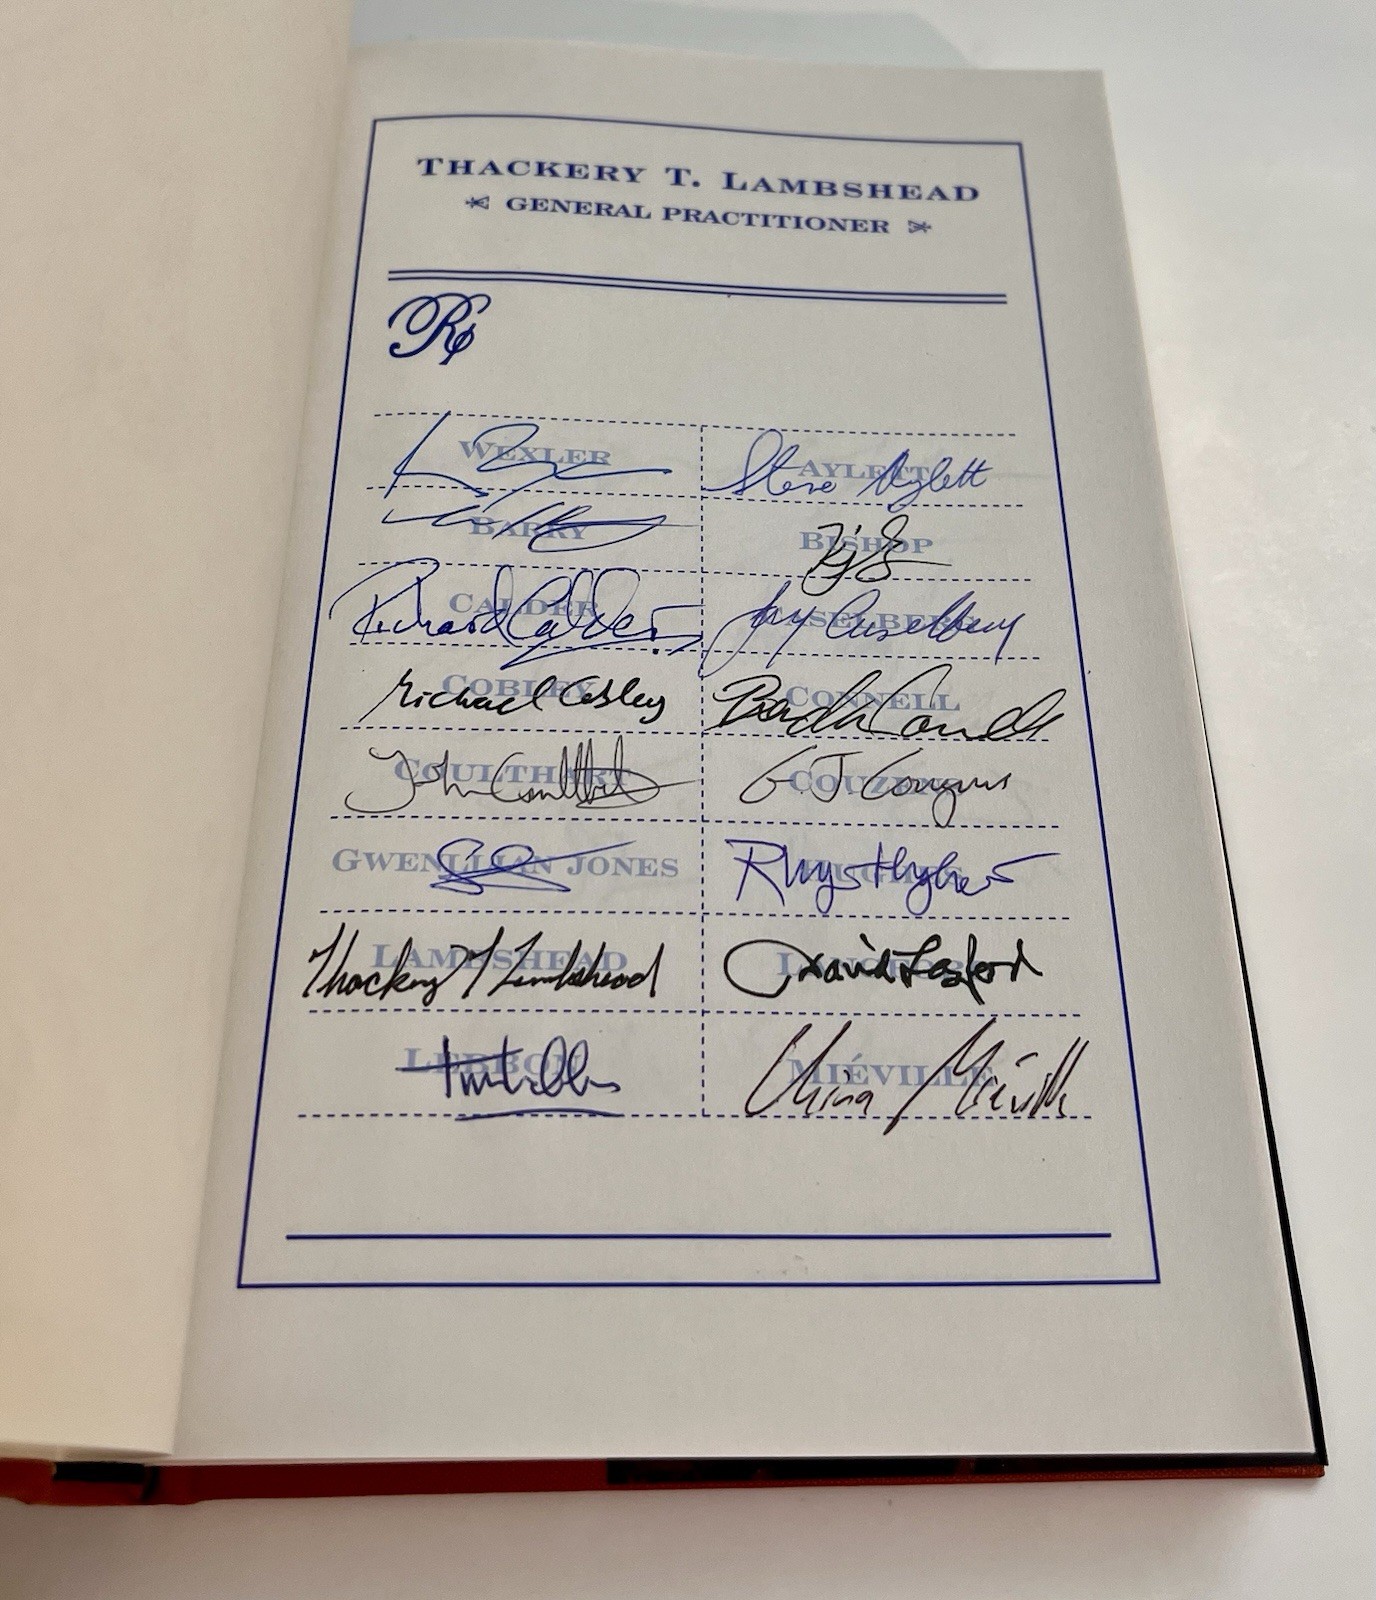 THACKERY T. LAMBSHEAD
GENERAL PRACTITIONER
℞
WEXLER
AYLETT
Steve Aylett
BARRY
BISHOP
KJB
CALDER
Richard Calder
CASELBERG
Jay Caselberg
COBLEY
Michael Cobley
CONNELL
Brendan Connell
COULTHART
John Coulthart
COUZENS
G J Couzens
GWENLLIAN JONES
HUGHES
Rhys Hughes
LAMBSHEAD
Thackery T Lambshead
LANGFORD
David Langford
LEBBON
Tim Lebbon
MIÉVILLE
China Miéville